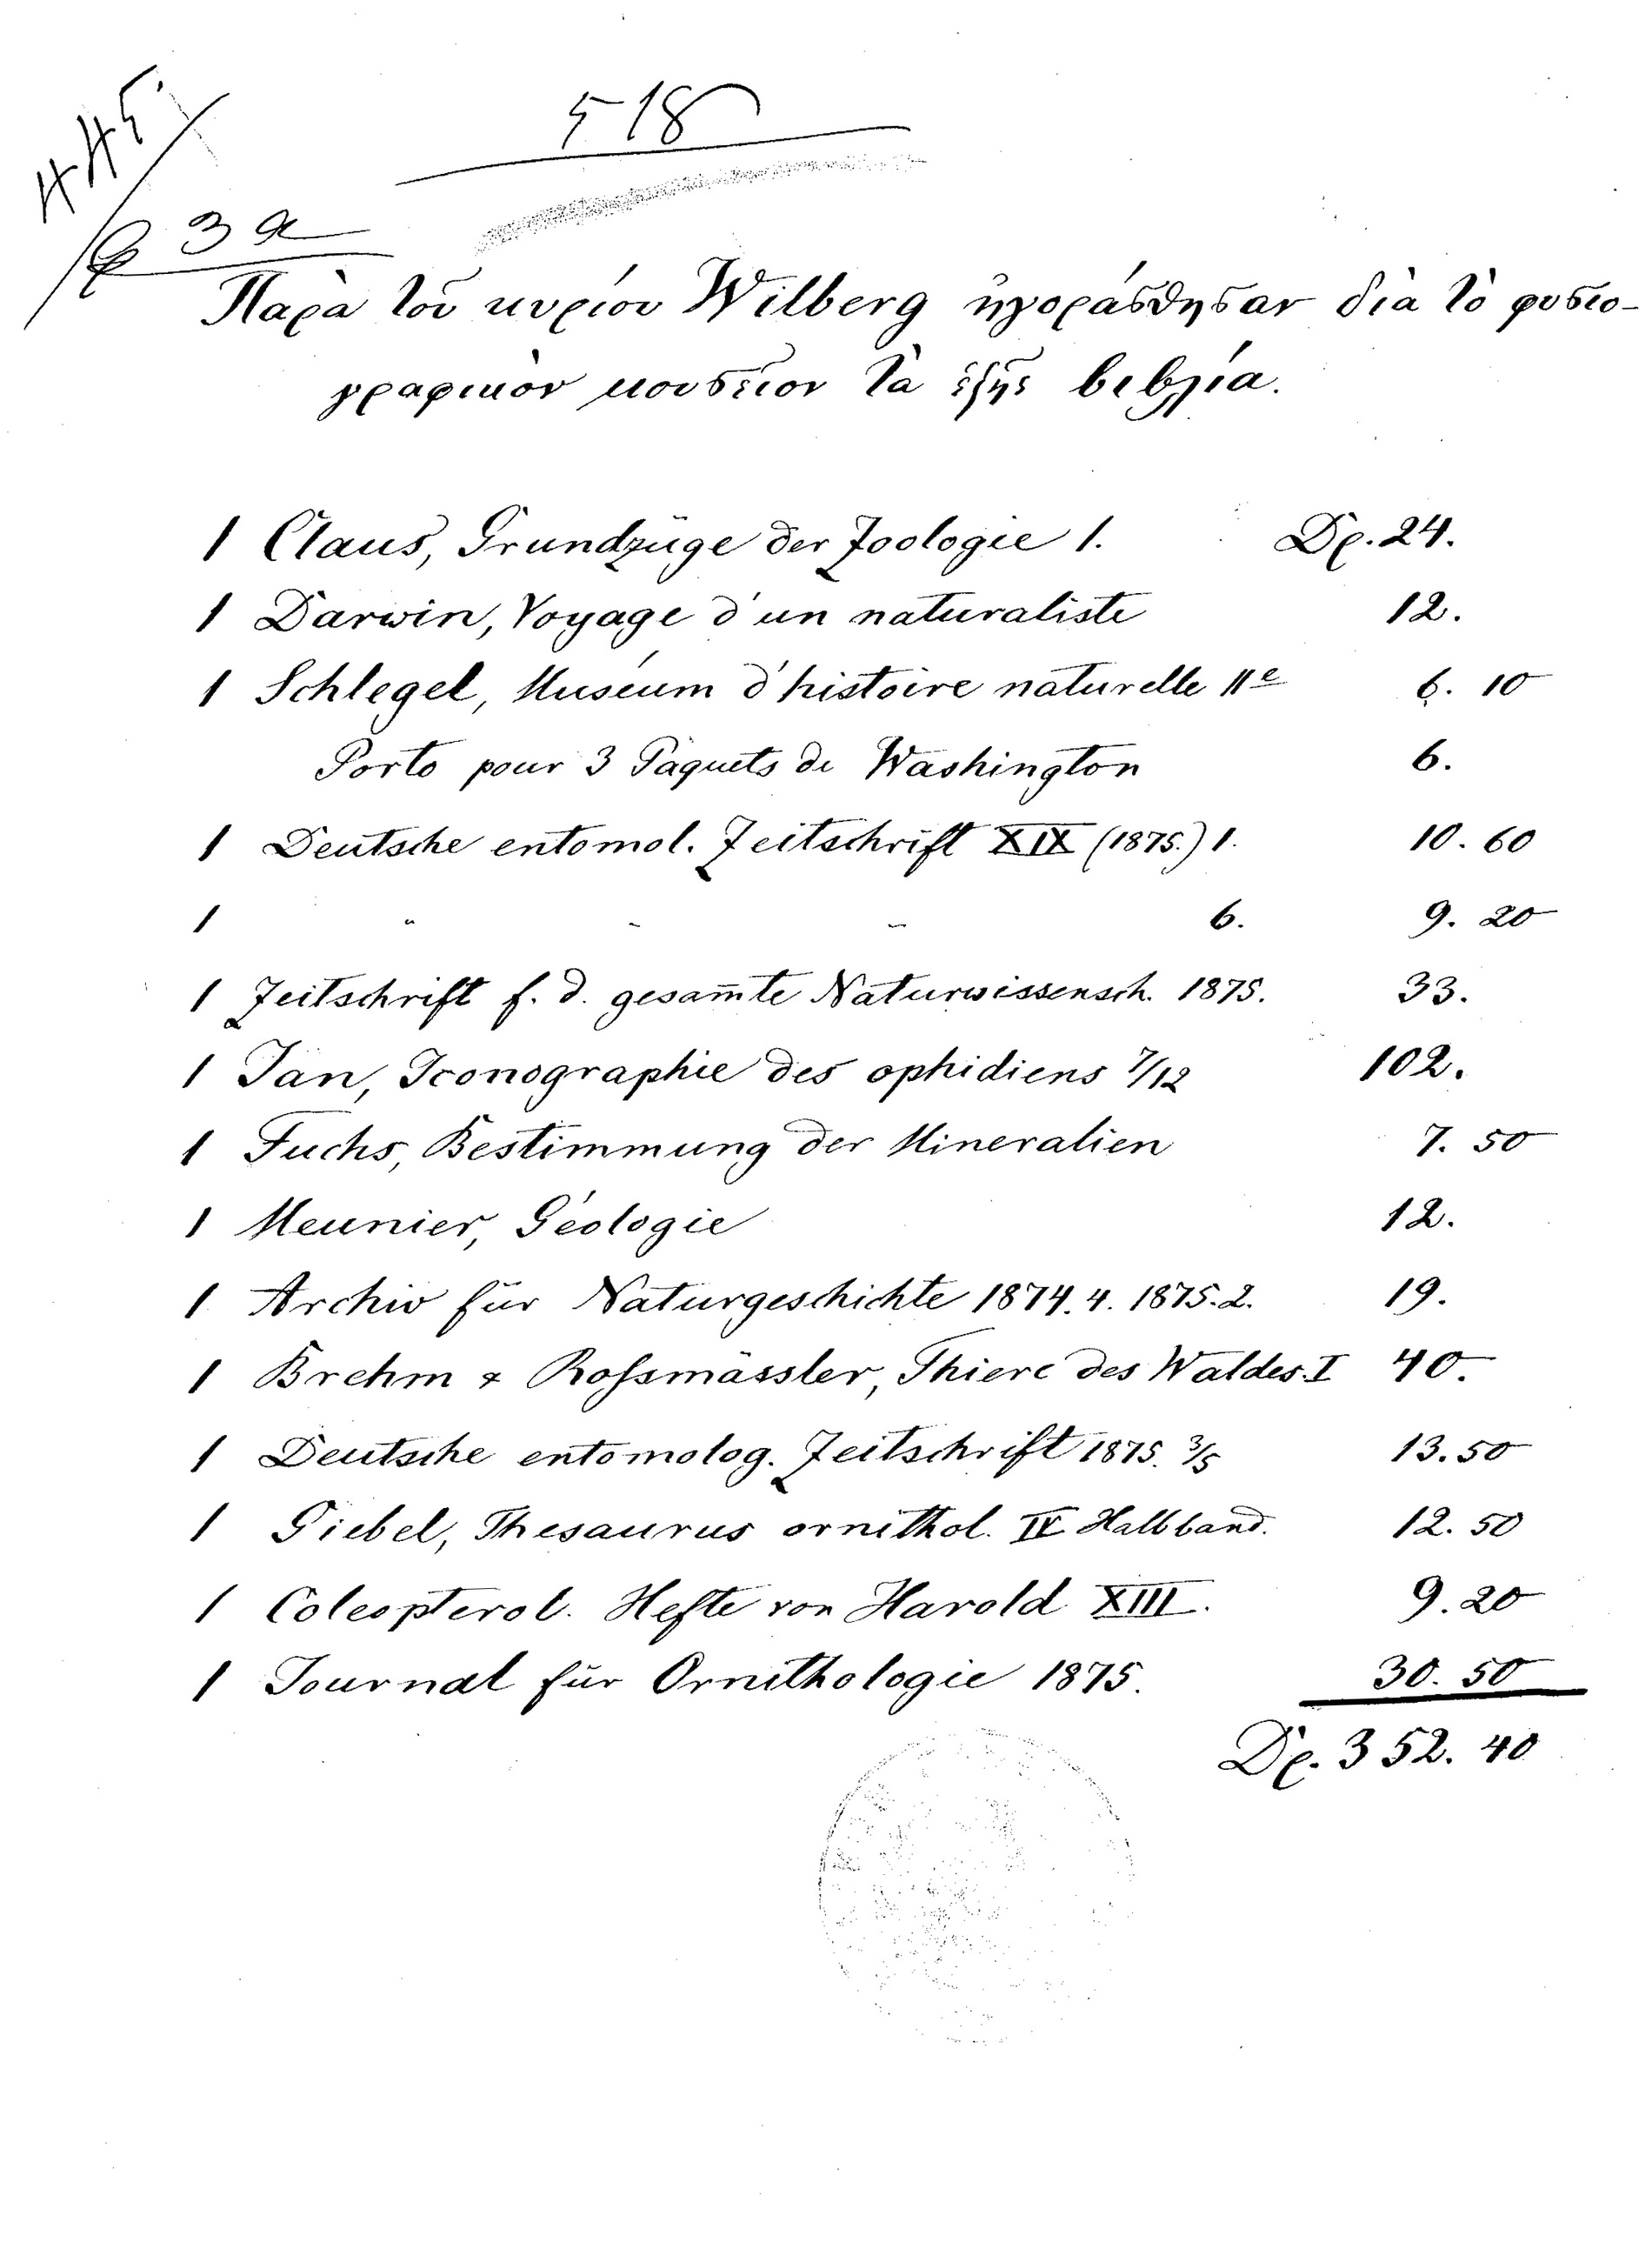 445
518
3 α
Παρὰ τοῦ κυρίου Wilberg ἠγοράσθησαν διὰ τὸ φυσιο-
γραφικὸν μουσεῖον τὰ ἑξῆς βιβλία.
1 Claus, Grundzüge der Zoologie 1. Δρ. 24.
1 Darwin, Voyage d'un naturaliste 12.
1 Schlegel, Muséum d'histoire naturelle 11e 6. 10
Porto pour 3 Paquets de Washington 6.
1 Deutsche entomol. Zeitschrift XIX (1875.) 1. 10. 60
1 " " " 6. 9. 20
1 Zeitschrift f. d. gesam̅te Naturwissensch. 1875. 33.
1 Jan, Iconographie des ophidiens 7/12 102.
1 Fuchs, Bestimmung der Mineralien 7. 50
1 Meunier, Géologie 12.
1 Archiv für Naturgeschichte 1874. 4. 1875. 2. 19.
1 Brehm & Roſsmässler, Thiere des Waldes. I 40.
1 Deutsche entomolog. Zeitschrift 1875. 3/5 13. 50
1 Giebel, Thesaurus ornithol. IV Halbband. 12. 50
1 Coleopterol. Hefte von Harold XIII. 9. 20
1 Journal für Ornithologie 1875. 30. 50
Δρ. 352. 40